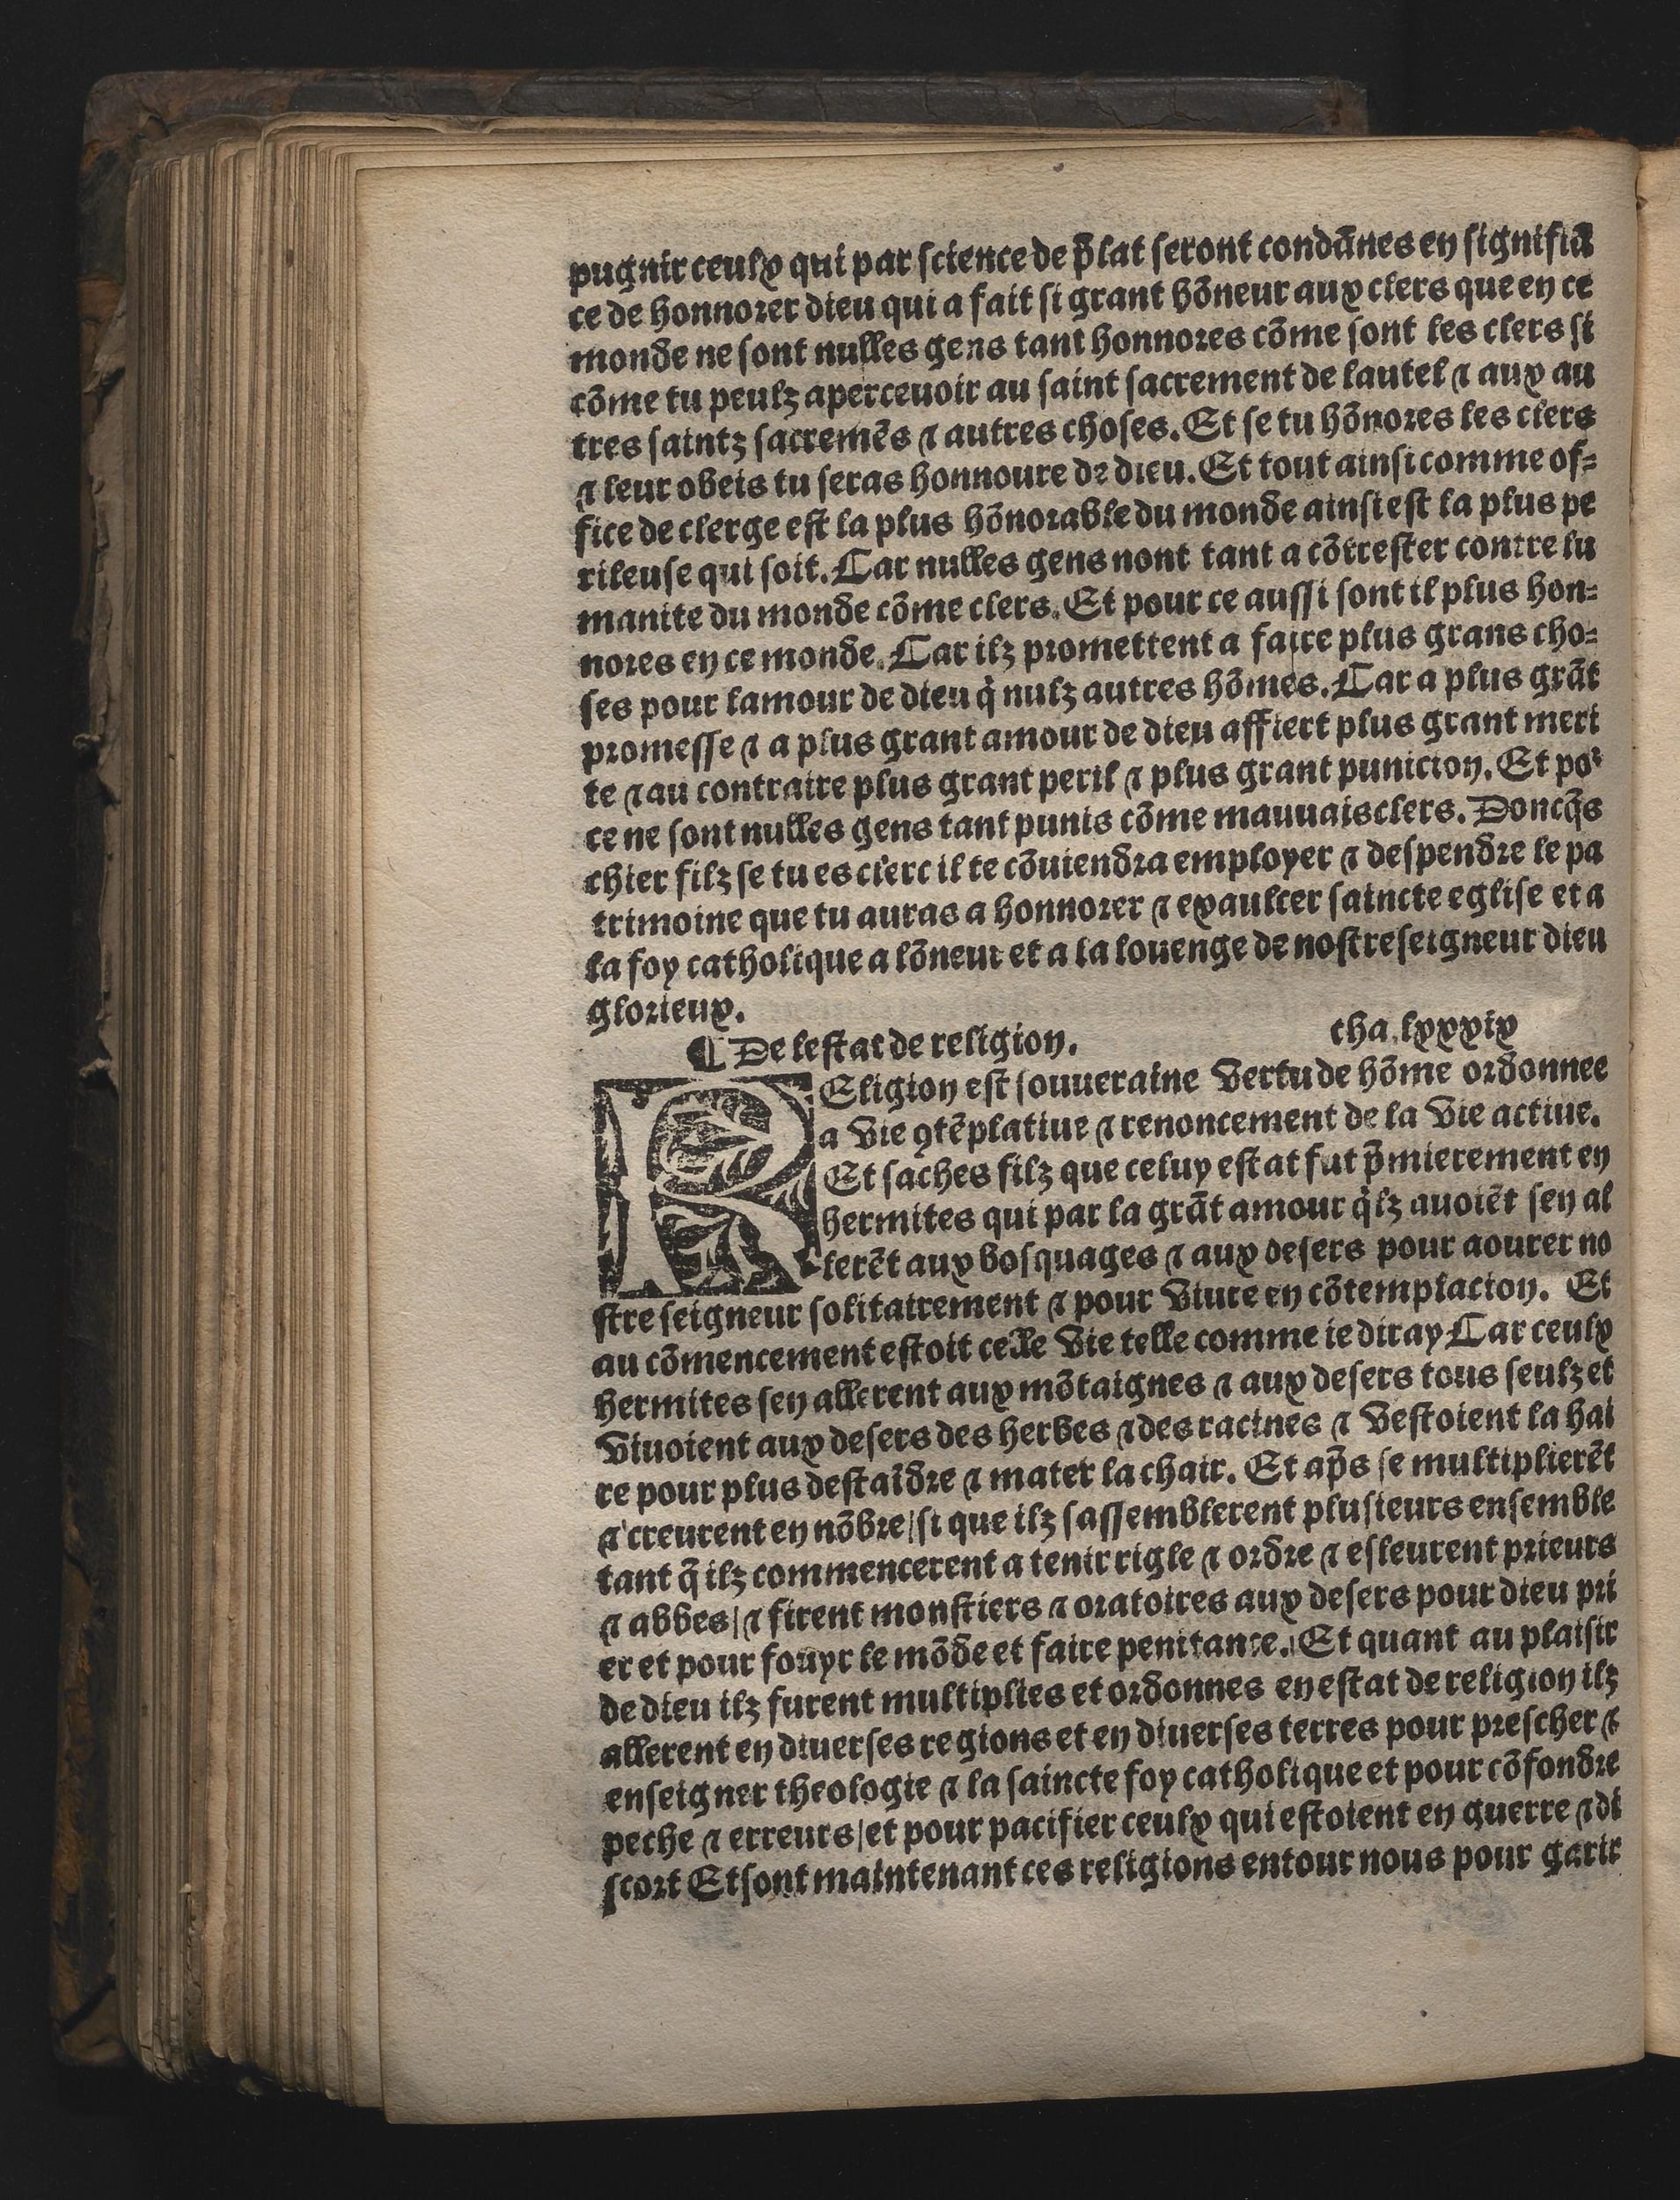 pugnir ceulx qui par science de p̃lat seront condãnes en signifiã
ce de honnorer dieu qui a fait si grant hõneur aux clers que en ce
monde ne sont nulles gens tant honnores cõme sont les clers si
cõme tu peulz apercevoir au saint sacrement de lautel ⁊ aux au
tres saintz sacremẽs ⁊ autres choses. Et se tu hõnores les clers
⁊ leur obeis tu seras honnoure de dieu. Et tout ainsi comme of=
fice de clerge est la plus hõnorable du monde ainsi est la plus pe
rileuse qui soit. Car nulles gens nont tant a cõtrester contre lu
manite du monde cõme clers. Et pour ce aussi sont il plus hon=
nores en ce monde. Car ilz promettent a faire plus grans cho=
ses pour lamour de dieu q̃ nulz autres hõmes. Car a plus grãt
promesse ⁊ a plus grant amour de dieu affiert plus grant meri
te ⁊ au contraire plus grant peril ⁊ plus grant punicion. Et poᷣ
ce ne sont nulles gens tant punis cõme mauuais clers. Doncq̃s
chier filz se tu es clerc il te cõuiendra employer ⁊ despendre le pa
trimoine que tu auras a honnorer ⁊ exaulcer saincte eglise et a
la foy catholique a lõneur et a la louenge de nostre seigneur dieu
glorieux.
¶ De lestat de religion. cha. lxxxix
REligion est souueraine vertu de hõme ordonnee
a vie ꝯtẽplatiue ⁊ renoncement de la vie actiue.
Et saches filz que celuy estat fut p̃mierement en
hermites qui par la grãt amour q̃lz auoiẽt sen al
lerẽt aux bosquages ⁊ aux desers pour aourer no
stre seigneur solitairement ⁊ pour viure en cõtemplacion. Et
au cõmencement estoit celle vie telle comme ie diray Car ceulx
hermites sen allerent aux mõtaignes ⁊ aux desers tous seulz et
viuoient aux desers des herbes ⁊ des racines ⁊ vestoient la hai
re pour plus destaĩdre ⁊ mater la chair. Et ap̃s se multiplierẽt
⁊ creurent en nõbre/ si que ilz sassemblerent plusieurs ensemble
tant q̃ ilz commencerent a tenir rigle ⁊ ordre ⁊ esleurent prieurs
⁊ abbes/ ⁊ firent monstiers ⁊ oratoires aux desers pour dieu pri
er et pour fouyr le mõde et faire penitance. Et quant au plaisir
de dieu ilz furent multiplies et ordonnes en estat de religion ilz
allerent en diuerses regions et en diuerses terres pour prescher ⁊
enseigner theologie ⁊ la saincte foy catholique et pour cõfondre
peche ⁊ erreurs/ et pour pacifier ceulx qui estoient en guerre ⁊ di
scort Et sont maintenant ces religions entour nous pour garir